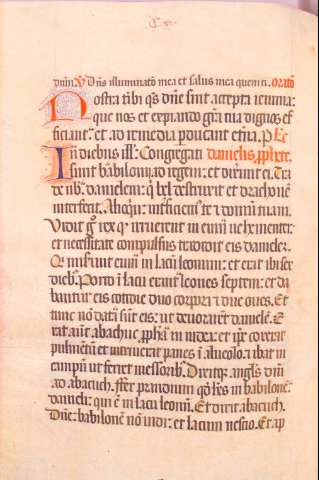 dnm. V Dns illuminatio mea et salus mea quem ti. oratio
Nostra tibi qs dne sint accepta ieiunia:
que nos et expiando gra tua dignos ef
ficiant: et ad remedia perducant etna. P
In diebus ill': Congregati danielis, pphete.
sunt babilonii ad regem: et dixerunt ei. Tra
de nob danielem: q bel destruxit et drachonem
interfecit. Alioquin interficiem te et domum tuam.
Vidit g rex q irruerent in eum vehementer:
et necessitate compulsus tradidit eis danielem.
Qui miserunt eum in lacu leonum: et erat ibi sex
dieb. Porro i lacu erant leones septem: et da
bantur eis cottidie duo corpora et due oues. Et
tunc no data sunt eis: ut deuorarent daniele. E
rat aut abachuc ppha in iudea: et ipe coxerat
pulmentu et intriuerat panes i alueolo. et ibat in
campu ut ferret messorib. Dixitqe angls dni
ad abacuch. fer prandium qd hes in babilone
danieli: qui e in lacu leonu. Et dixit abacuch.
Dne: babilone no uidi: et lacum nescio. Et ap